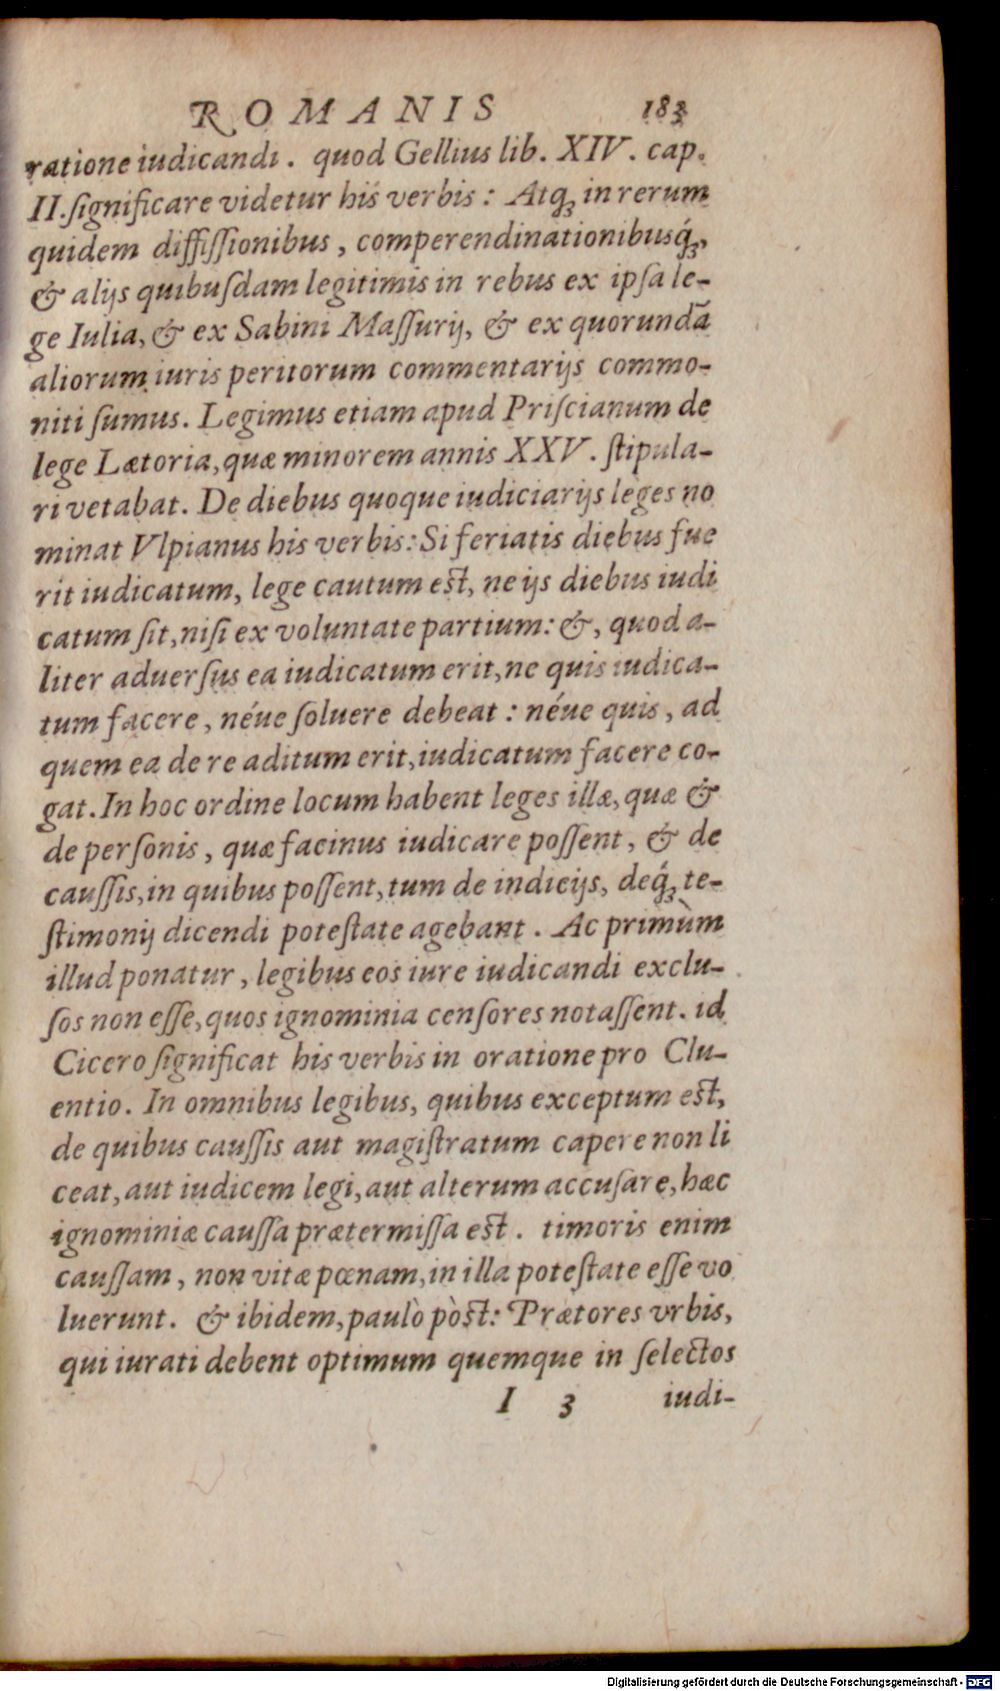 ROMANIS 183
ratione iudicandi. quod Gellius lib. XIV. cap.
II. ſignificare videtur his verbis: Atq; in rerum
quidem diffiſſionibus, comperendinationibusq́;,
& alijs quibuſdam legitimis in rebus ex ipſa le-
ge Iulia, & ex Sabini Maſſurij, & ex quorundã
aliorum iuris peritorum commentarijs commo-
niti ſumus. Legimus etiam apud Priſcianum de
lege Lætoria, quæ minorem annis XXV. ſtipula-
ri vetabat. De diebus quoque iudiciarijs leges no
minat Vlpianus his verbis: Si feriatis diebus fue
rit iudicatum, lege cautum eſt, ne ijs diebus iudi
catum ſit, niſi ex voluntate partium: &, quod a-
liter aduerſus ea iudicatum erit, ne quis iudica-
tum facere, néue ſoluere debeat: néue quis, ad
quem ea de re aditum erit, iudicatum facere co-
gat. In hoc ordine locum habent leges illæ, quæ &
de perſonis, quæ facinus iudicare poſſent, & de
cauſſis, in quibus poſſent, tum de indicijs, deq́; te-
ſtimonij dicendi poteſtate agebant. Ac primùm
illud ponatur, legibus eos iure iudicandi exclu-
ſos non eſſe, quos ignominia cenſores notaſſent. id
Cicero ſignificat his verbis in oratione pro Clu-
entio. In omnibus legibus, quibus exceptum eſt,
de quibus cauſſis aut magiſtratum capere non li
ceat, aut iudicem legi, aut alterum accuſare, hæc
ignominiæ cauſſa prætermiſſa eſt. timoris enim
cauſſam, non vitæ pœnam, in illa poteſtate eſſe vo
luerunt. & ibidem, paulò pòſt: Prætores vrbis,
qui iurati debent optimum quemque in ſelectos
I 3 iudi-
Digitalisierung gefördert durch die Deutsche Forschungsgemeinschaft - DFG